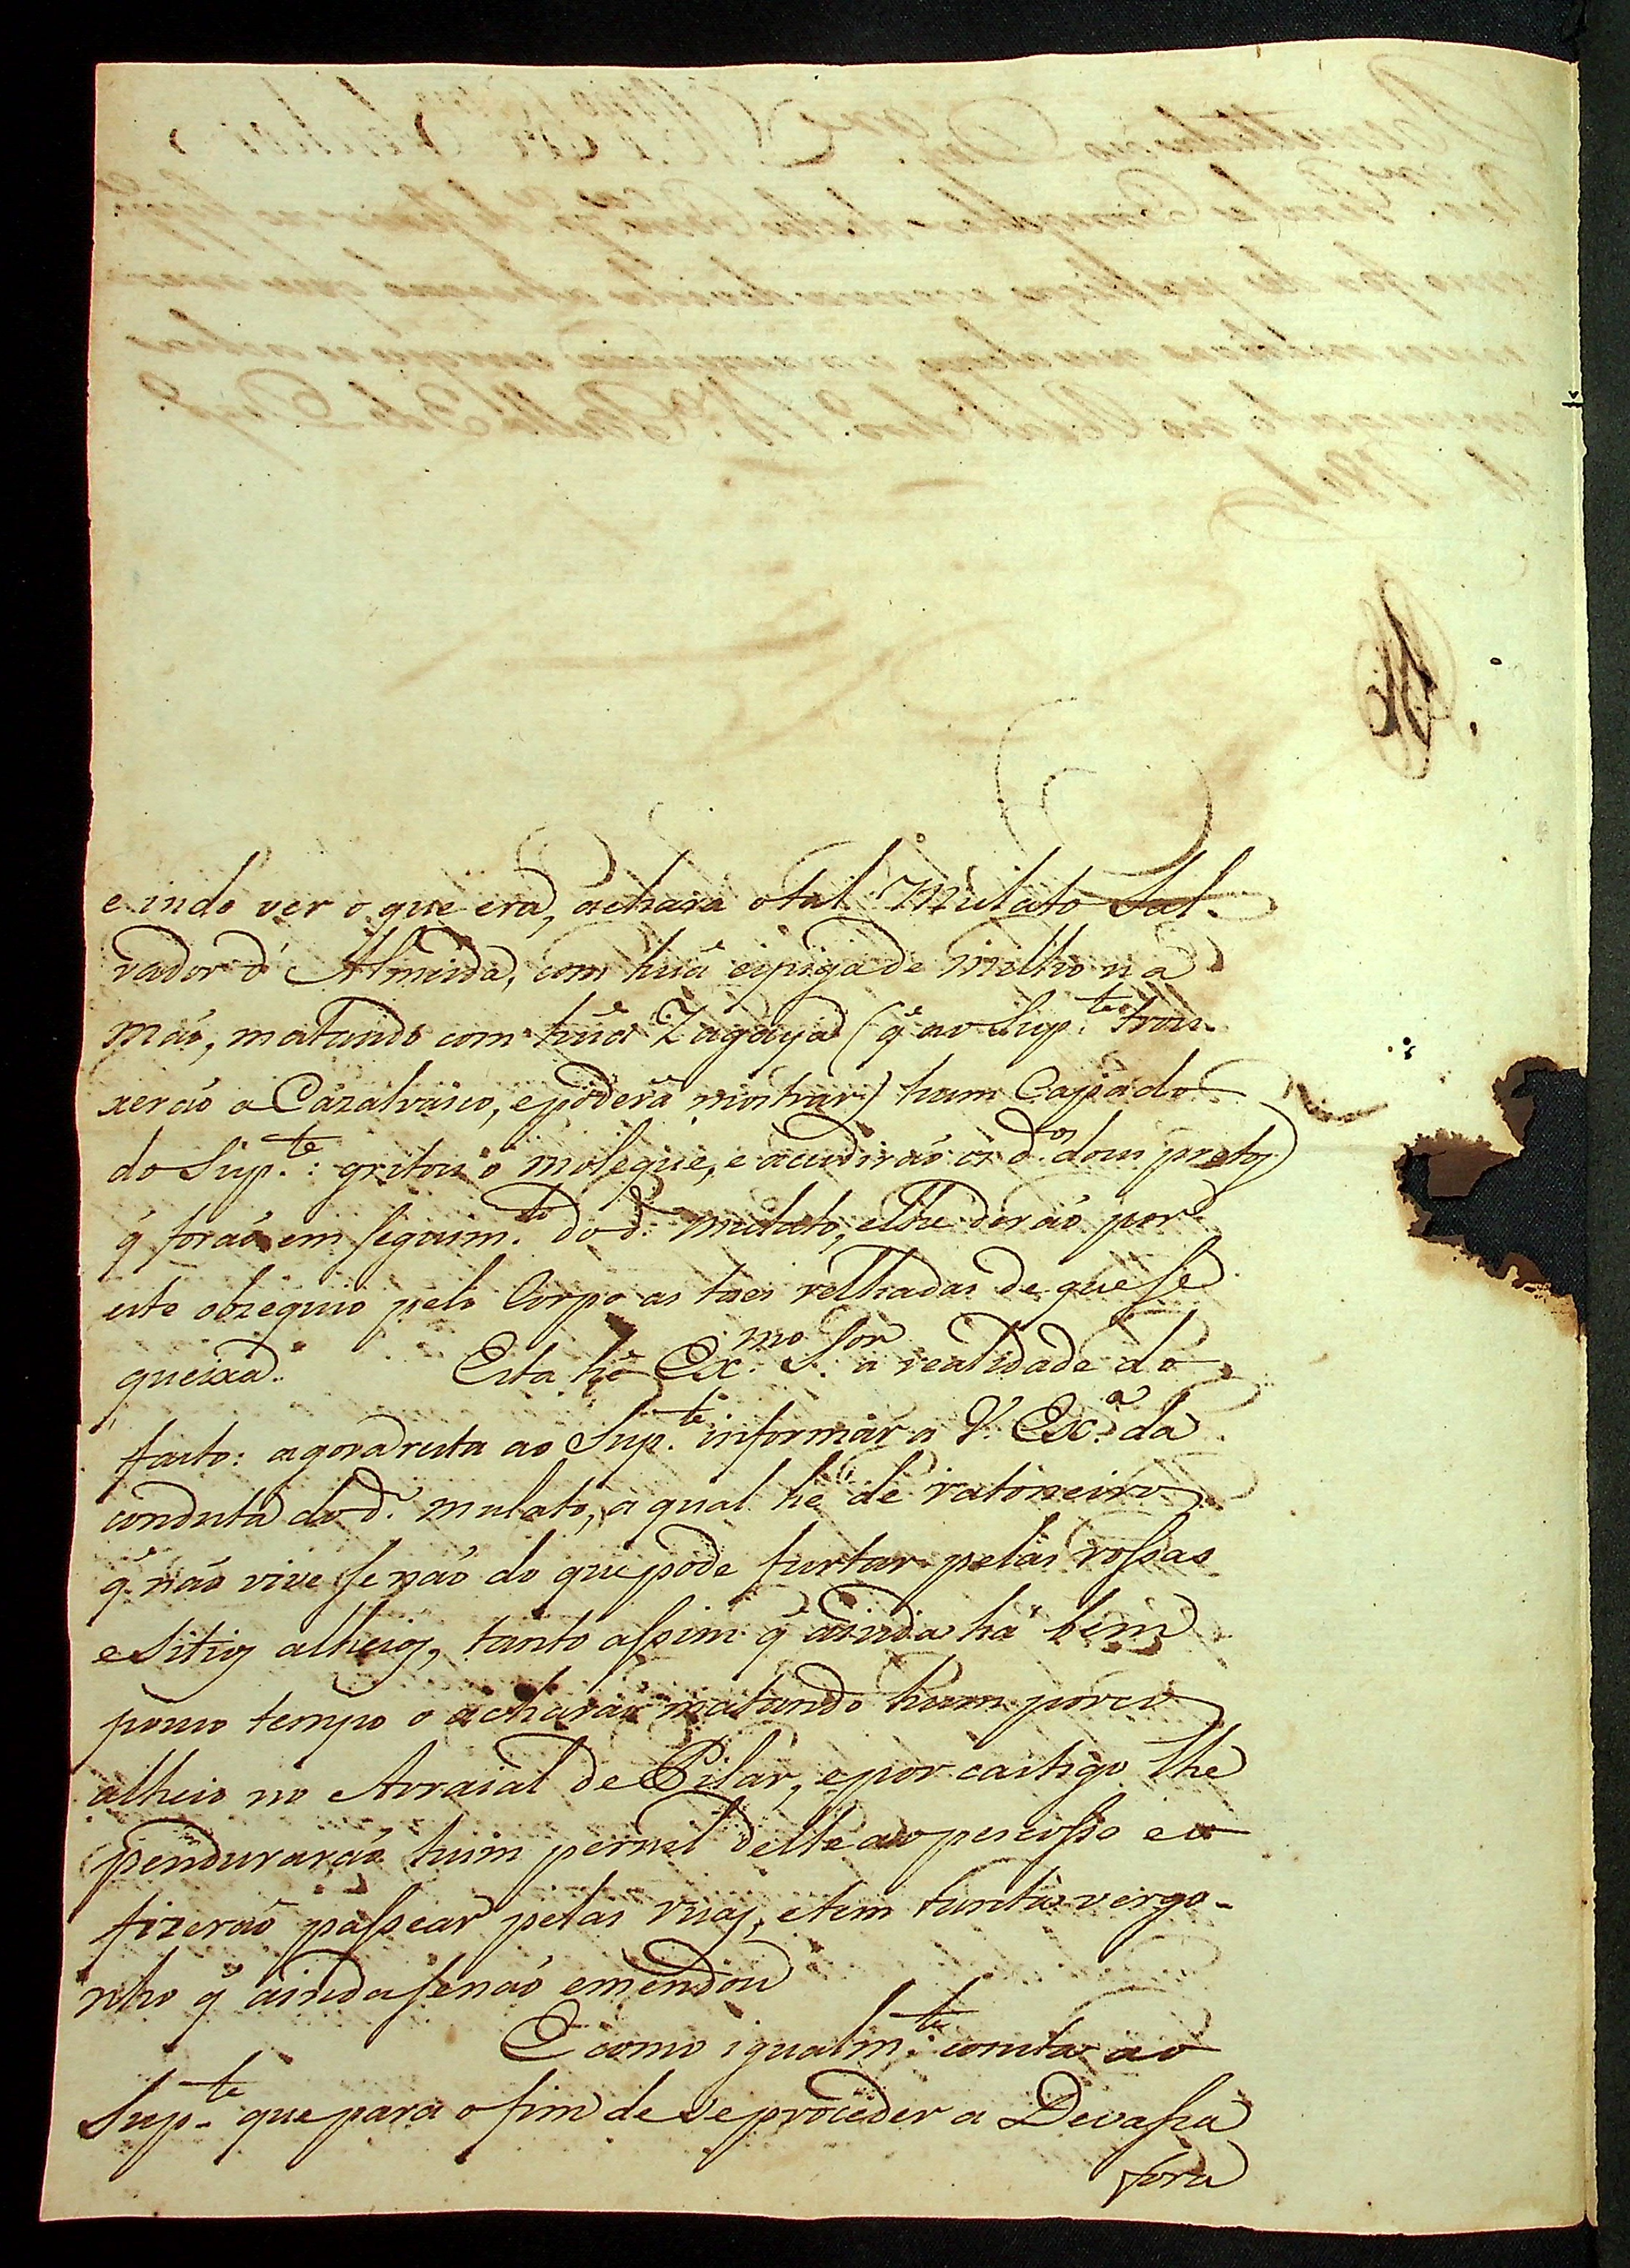 e indo ver o que era, achara o tal Mulato Sal-
vador d'Almeida, com hũa espiga de milho na
mão, matando com hũa Zagaya (q̃ ao Sup.te trou-
xerão a Cazalvasco, e poderá mostrar) hum Capado
do Sup.te: gritou o moleque, e acudirão os d.os dous pretos
q̃ forão em seguim.to do d.o mulato, e lhe derão por
este obzequio pelo Corpo as taes relhadas de que se
queixa. Esta hé Ex.mo S.or a realidade do
facto: agora resta ao Sup.te informar a V. Ex.a da
conduta do d.o mulato, a qual hé de ratoneiro
q̃ não vive senão do que pode furtar pelas rossas
e Sitios alheios, tanto assim q̃ ainda há bem
pouco tempo o acharão matando hum porco
alheio no Arraial de Pilar, e por castigo lhe
pendurarão hum pernil delle ao pescosso e o
fizerão passear pelas ruas, e tem tanta vergo-
nha q̃ ainda se não emendou
E como igualm.te consta ao
Sup.te que para o fim de se proceder a Devassa
fora